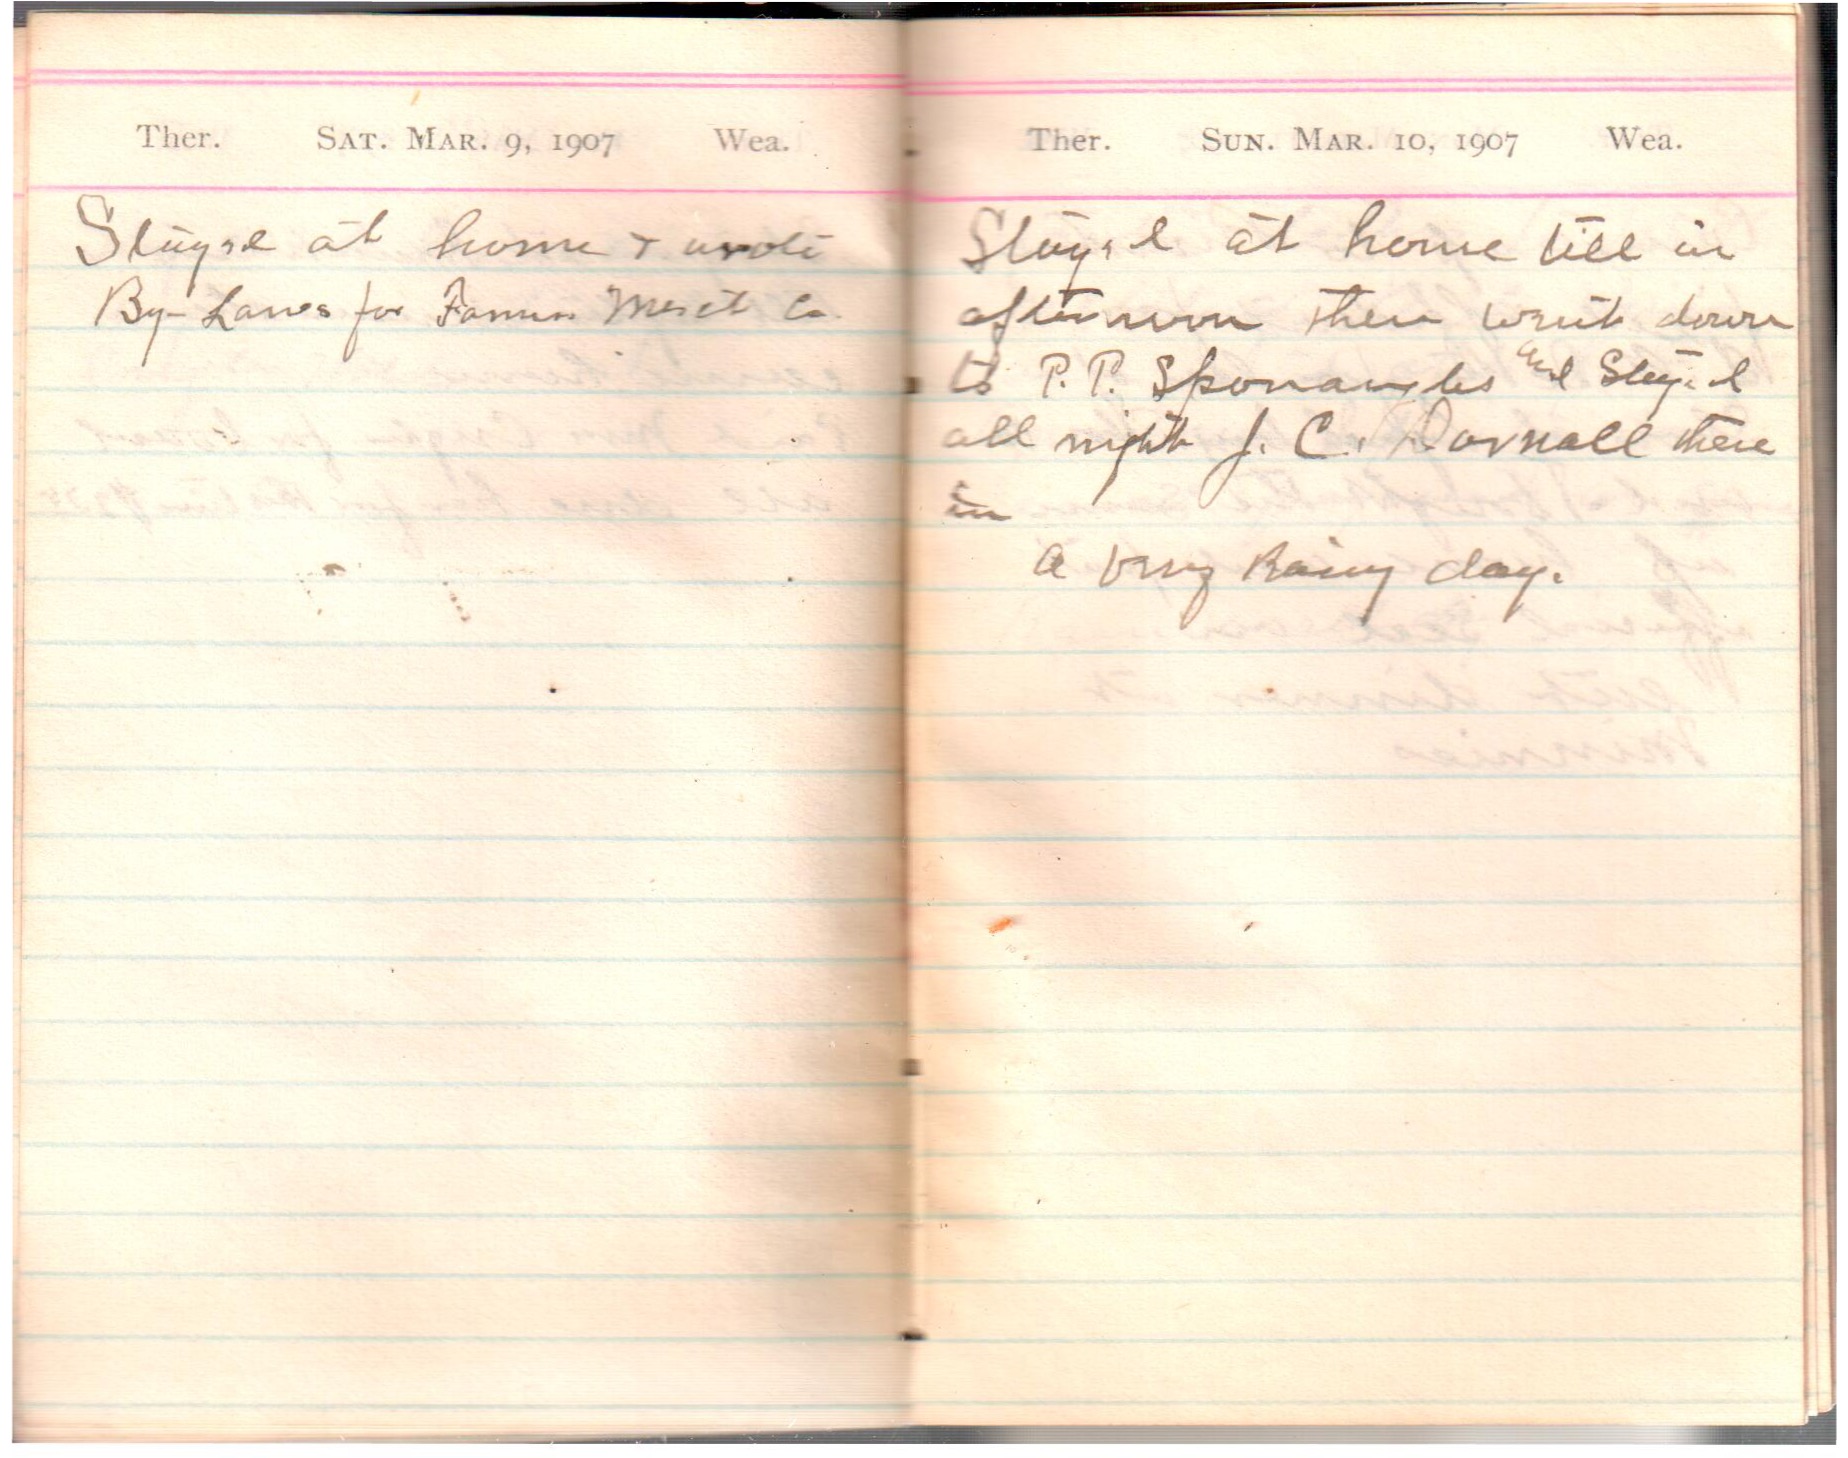 Ther. SAT. MAR. 9, 1907 Wea.
Stayed at home & wrote
By-Laws for Farmers Merct Co.
Ther. SUN. MAR. 10, 1907 Wea.
Stayed at home till in
afternoon then went down
to P. P. Sponaugles and Stayed
all night J. C. Darnall there
in
a very Rainy day.